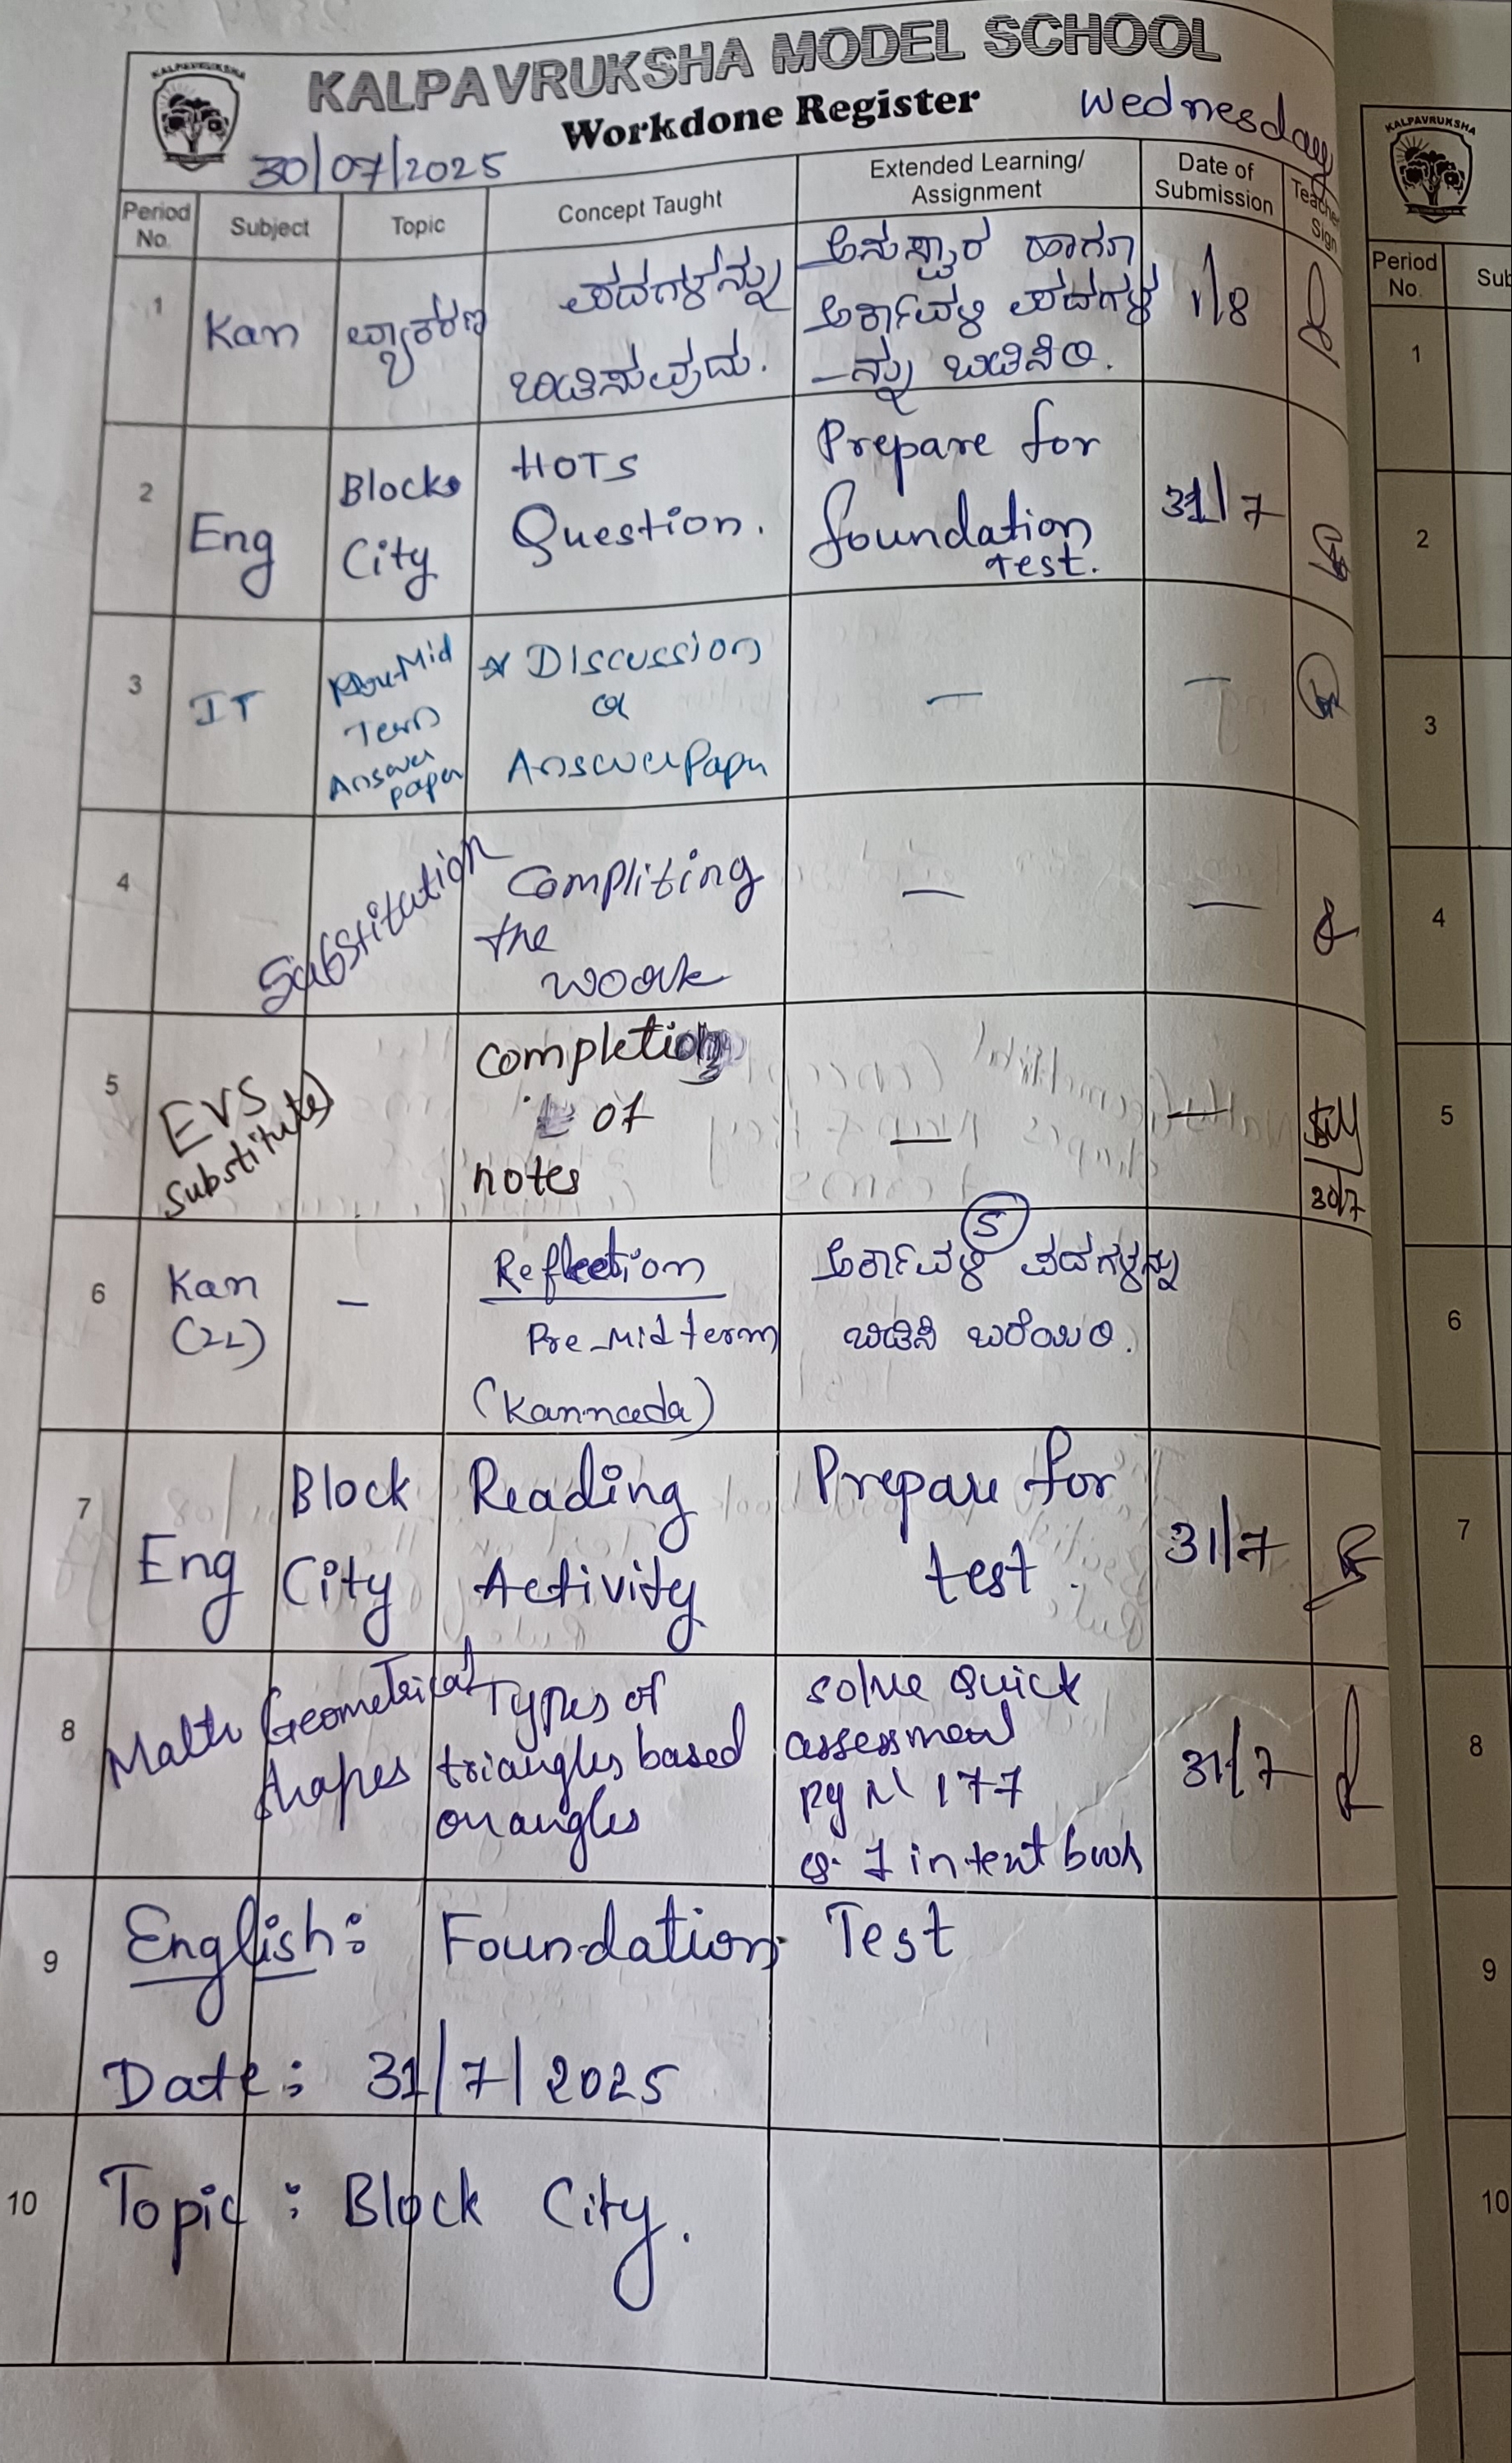 KALPAVRUKSHA
KALPAVRUKSHA MODEL SCHOOL
Workdone Register
Wednesday
30/07/2025
Period No.
Subject
Topic
Concept Taught
Extended Learning/ Assignment
Date of Submission
Teacher Sign
1
Kan
ವ್ಯಾಕರಣ
ಪದಗಳನ್ನು
ಬಿಡಿಸುವುದು.
ಅನುಸ್ವಾರ ಹಾಗೂ
ಅರ್ಕಾವಳಿ ಪದಗಳ
-ನ್ನು ಬಿಡಿಸಿರಿ.
1/8
2
Eng
Blocks
City
HOTS
Question.
Prepare for
foundation
test.
31/7
3
IT
Pre-Mid
Term
Answer
paper
Discussion
Answer Paper
—
—
4
Substitution
Compliting
the
work
—
—
5
EVS
Substitute)
completion
of
notes
—
—
30/7
6
Kan
(2L)
–
Reflection
Pre-Mid term
(Kannada)
5
ಅರ್ಕಾವಳಿ ಪದಗಳನ್ನು
ಬಿಡಿಸಿ ಬರೆಯಿರಿ.
7
Eng
Block
City
Reading
Activity
Prepare for
test.
31/7
8
Math
Geometrical
shapes
Types of
triangles based
on angles
solve Quick
assessment
pg N 177
Q. 1 in text book
31/7
9
English: Foundation Test
Date: 31/7/2025
10
Topic: Block City.
KALPAVRUKSHA
Period No.
Sub
1
2
3
4
5
6
7
8
9
10